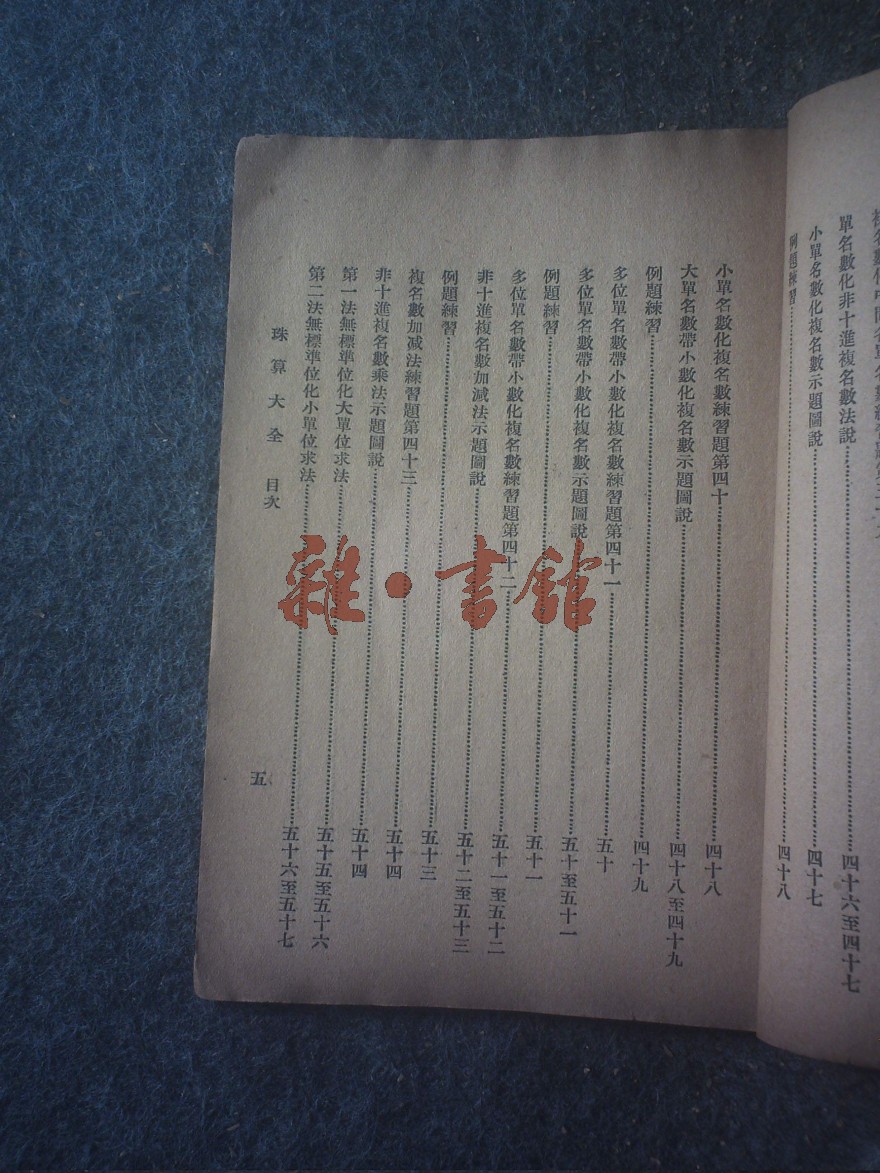 單名數化非十進複名數法說……四十六至四十七
小單名數化複名數示題圖說……四十七
例題練習……四十八
小單名數化複名數練習題第四十……四十八
大單名數帶小數化複名數示題圖說……四十八至四十九
例題練習……四十九
多位單名數帶小數化複名數練習題第四十一……五十
多位單名數帶小數化複名數示題圖說……五十至五十一
例題練習……五十一
多位單名數帶小數化複名數練習題第四十二……五十一至五十二
非十進複名數加減法示題圖說……五十二至五十三
例題練習……五十三
複名數加減法練習題第四十三……五十四
非十進複名數乘法示題圖說……五十四
第一法無標準位化大單位求法……五十五至五十六
第二法無標準位化小單位求法……五十六至五十七
珠算大全 目次
五
雜·書館